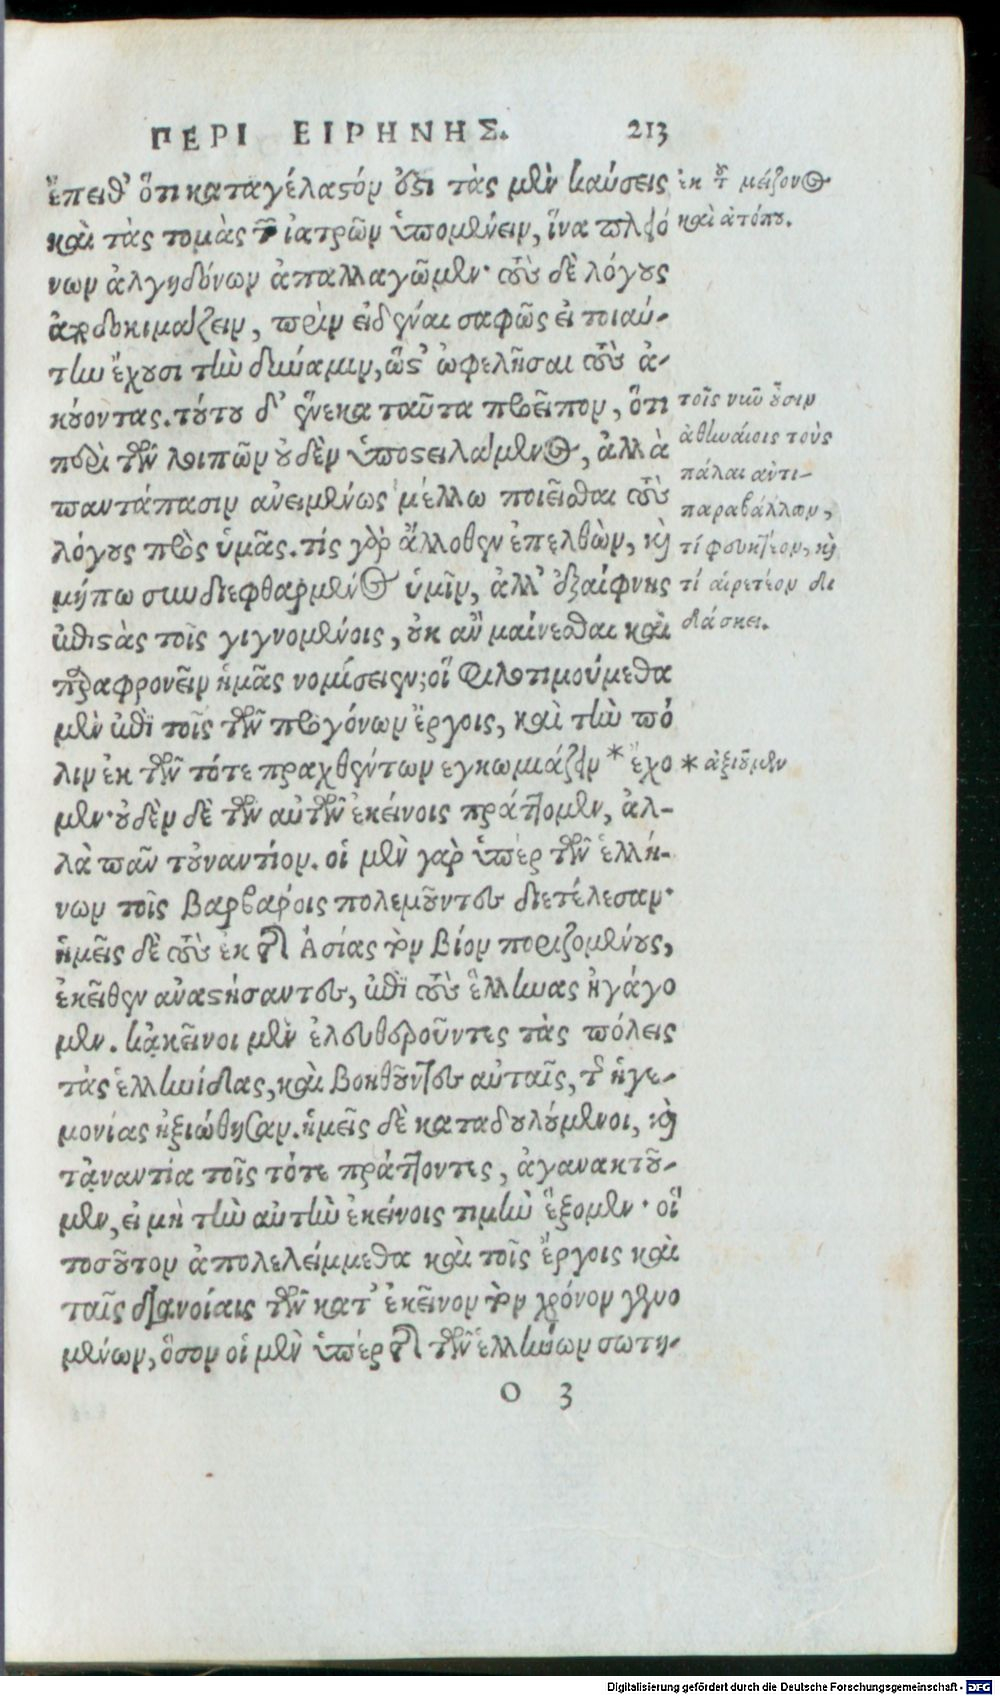 ΠΕΡΙ ΕΙΡΗΝΗΣ. 213
ἔπειθ' ὅτι καταγέλαστόν ὅστι τὰς μὲν καύσεις
ἐκ τοῦ μείζονος
καὶ τὰς τομὰς τῶν ἰατρῶν ὑπομένειν, ἵνα πλειό
καὶ ἀτόπου.
νων ἀλγηδόνων ἀπαλλαγῶμεν· τοὺς δὲ λόγους
ἀποδοκιμάζειν, πρὶν εἰδέναι σαφῶς εἰ τοιαύ-
την ἔχουσι τὴν δύναμιν, ὥστ' ὠφελῆσαι τοὺς ἀ-
κούοντας. τούτου δ' ἕνεκα ταῦτα προεῖπον, ὅτι
τοῖς νῦν οὖσιν
περὶ τῶν λοιπῶν οὐδὲν ὑποστειλάμενος, ἀλλὰ
ἀθηναίοις τοὺς
πάλαι ἀντι-
παντάπασιν ἀνειμένως μέλλω ποιεῖσθαι τοὺς
παραβάλλων,
λόγους πρὸς ὑμᾶς. τίς γὰρ ἄλλοθεν ἐπελθὼν, καὶ
τί φευκτέον, καὶ
μήπω συνδιεφθαρμένος ὑμῖν, ἀλλ' ἐξαίφνης
τί αἱρετέον δι
ἐπιστὰς τοῖς γιγνομένοις, οὐκ ἂν μαίνεσθαι καὶ
δάσκει.
παραφρονεῖν ἡμᾶς νομίσειεν; οἳ φιλοτιμούμεθα
μὲν ἐπὶ τοῖς τῶν προγόνων ἔργοις, καὶ τὴν πό
λιν ἐκ τῶν τότε πραχθέντων εγκωμιάζειν * ἔχο
* ἀξιοῦμεν
μεν· οὐδὲν δὲ τῶν αὐτῶν ἐκείνοις πράττομεν, ἀλ-
λὰ πᾶν τοὐναντίον. οἱ μὲν γὰρ ὑπὲρ τῶν ἑλλή-
νων τοῖς βαρβάροις πολεμοῦντες διετέλεσαν·
ἡμεῖς δὲ τοὺς ἐκ τῆς Ἀσίας τὸν βίον ποριζομένους,
ἐκεῖθεν ἀναστήσαντες, ἐπὶ τοὺς ἕλληνας ἠγάγο
μεν. κἀκεῖνοι μὲν ἐλευθεροῦντες τὰς πόλεις
τὰς ἑλληνίδας, καὶ βοηθοῦντες αὐταῖς, τῆς ἡγε-
μονίας ἠξιώθησαν. ἡμεῖς δὲ καταδουλούμενοι, καὶ
τἀναντία τοῖς τότε πράττοντες, ἀγανακτοῦ-
μεν, εἰ μὴ τὴν αὐτὴν ἐκείνοις τιμὴν ἕξομεν· οἳ
τοσοῦτον ἀπολελείμμεθα καὶ τοῖς ἔργοις καὶ
ταῖς διανοίαις τῶν κατ' ἐκεῖνον τὸν χρόνον γενο
μένων, ὅσον οἱ μὲν ὑπὲρ τῆς τῶν ἑλλήνων σωτη-
O 3
Digitalisierung gefördert durch die Deutsche Forschungsgemeinschaft - DFG